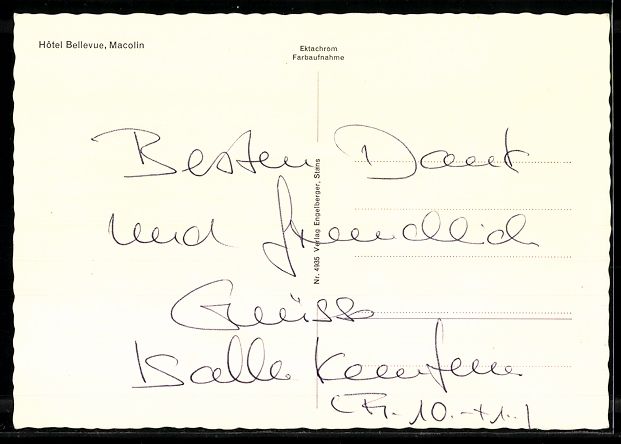 Hôtel Bellevue, Macolin
Ektachrom
Farbaufnahme
Nr. 4935 Verlag Engelberger, Stans
Besten Dank
und freundlich
Grüsse
(Fr. 10.-+1.-)